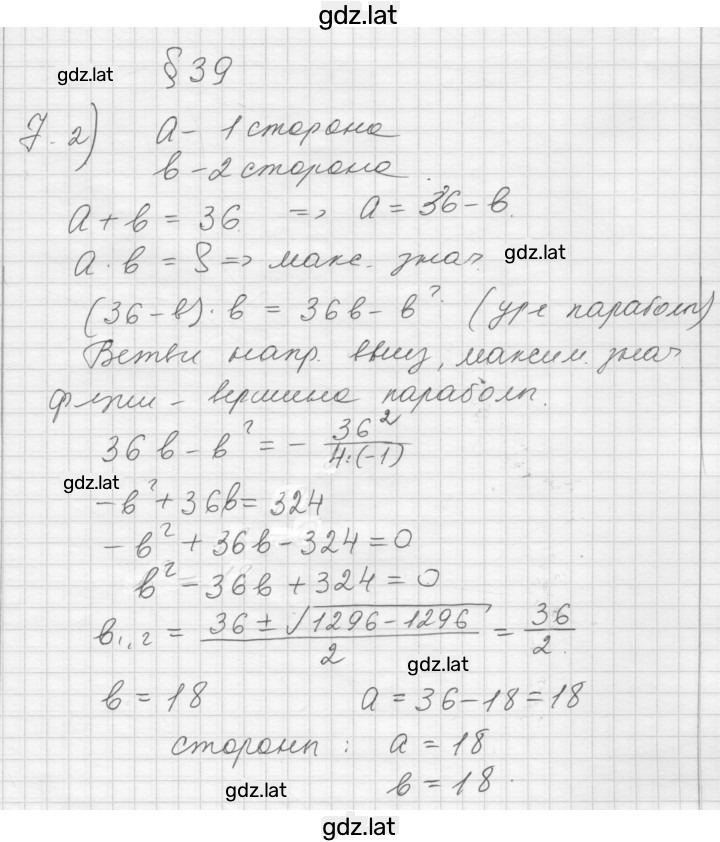 gdz.lat
gdz.lat
§ 39
7. 2) a – 1 сторона
в – 2 сторона
a + в = 36 => a = 36 – в.
a · в = S => макс. знач.
(36 – в) · в = 36в – в² (ур-е параболы)
Ветви напр. вниз, максим. знач.
ф-ции – вершина параболы.
36 в – в² = – 36² / 4·(-1)
gdz.lat
– в² + 36в = 324
– в² + 36в – 324 = 0
в² – 36в + 324 = 0
в₁,₂ = 36 ± √1296 – 1296 / 2 = 36 / 2
gdz.lat
в = 18 a = 36 – 18 = 18
стороны : a = 18
в = 18.
gdz.lat
gdz.lat
gdz.lat